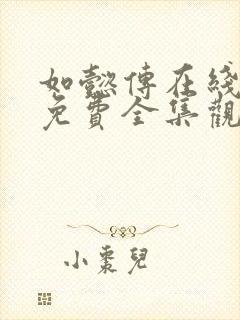 如懿傳在綫
免費全集觀
小棗兒